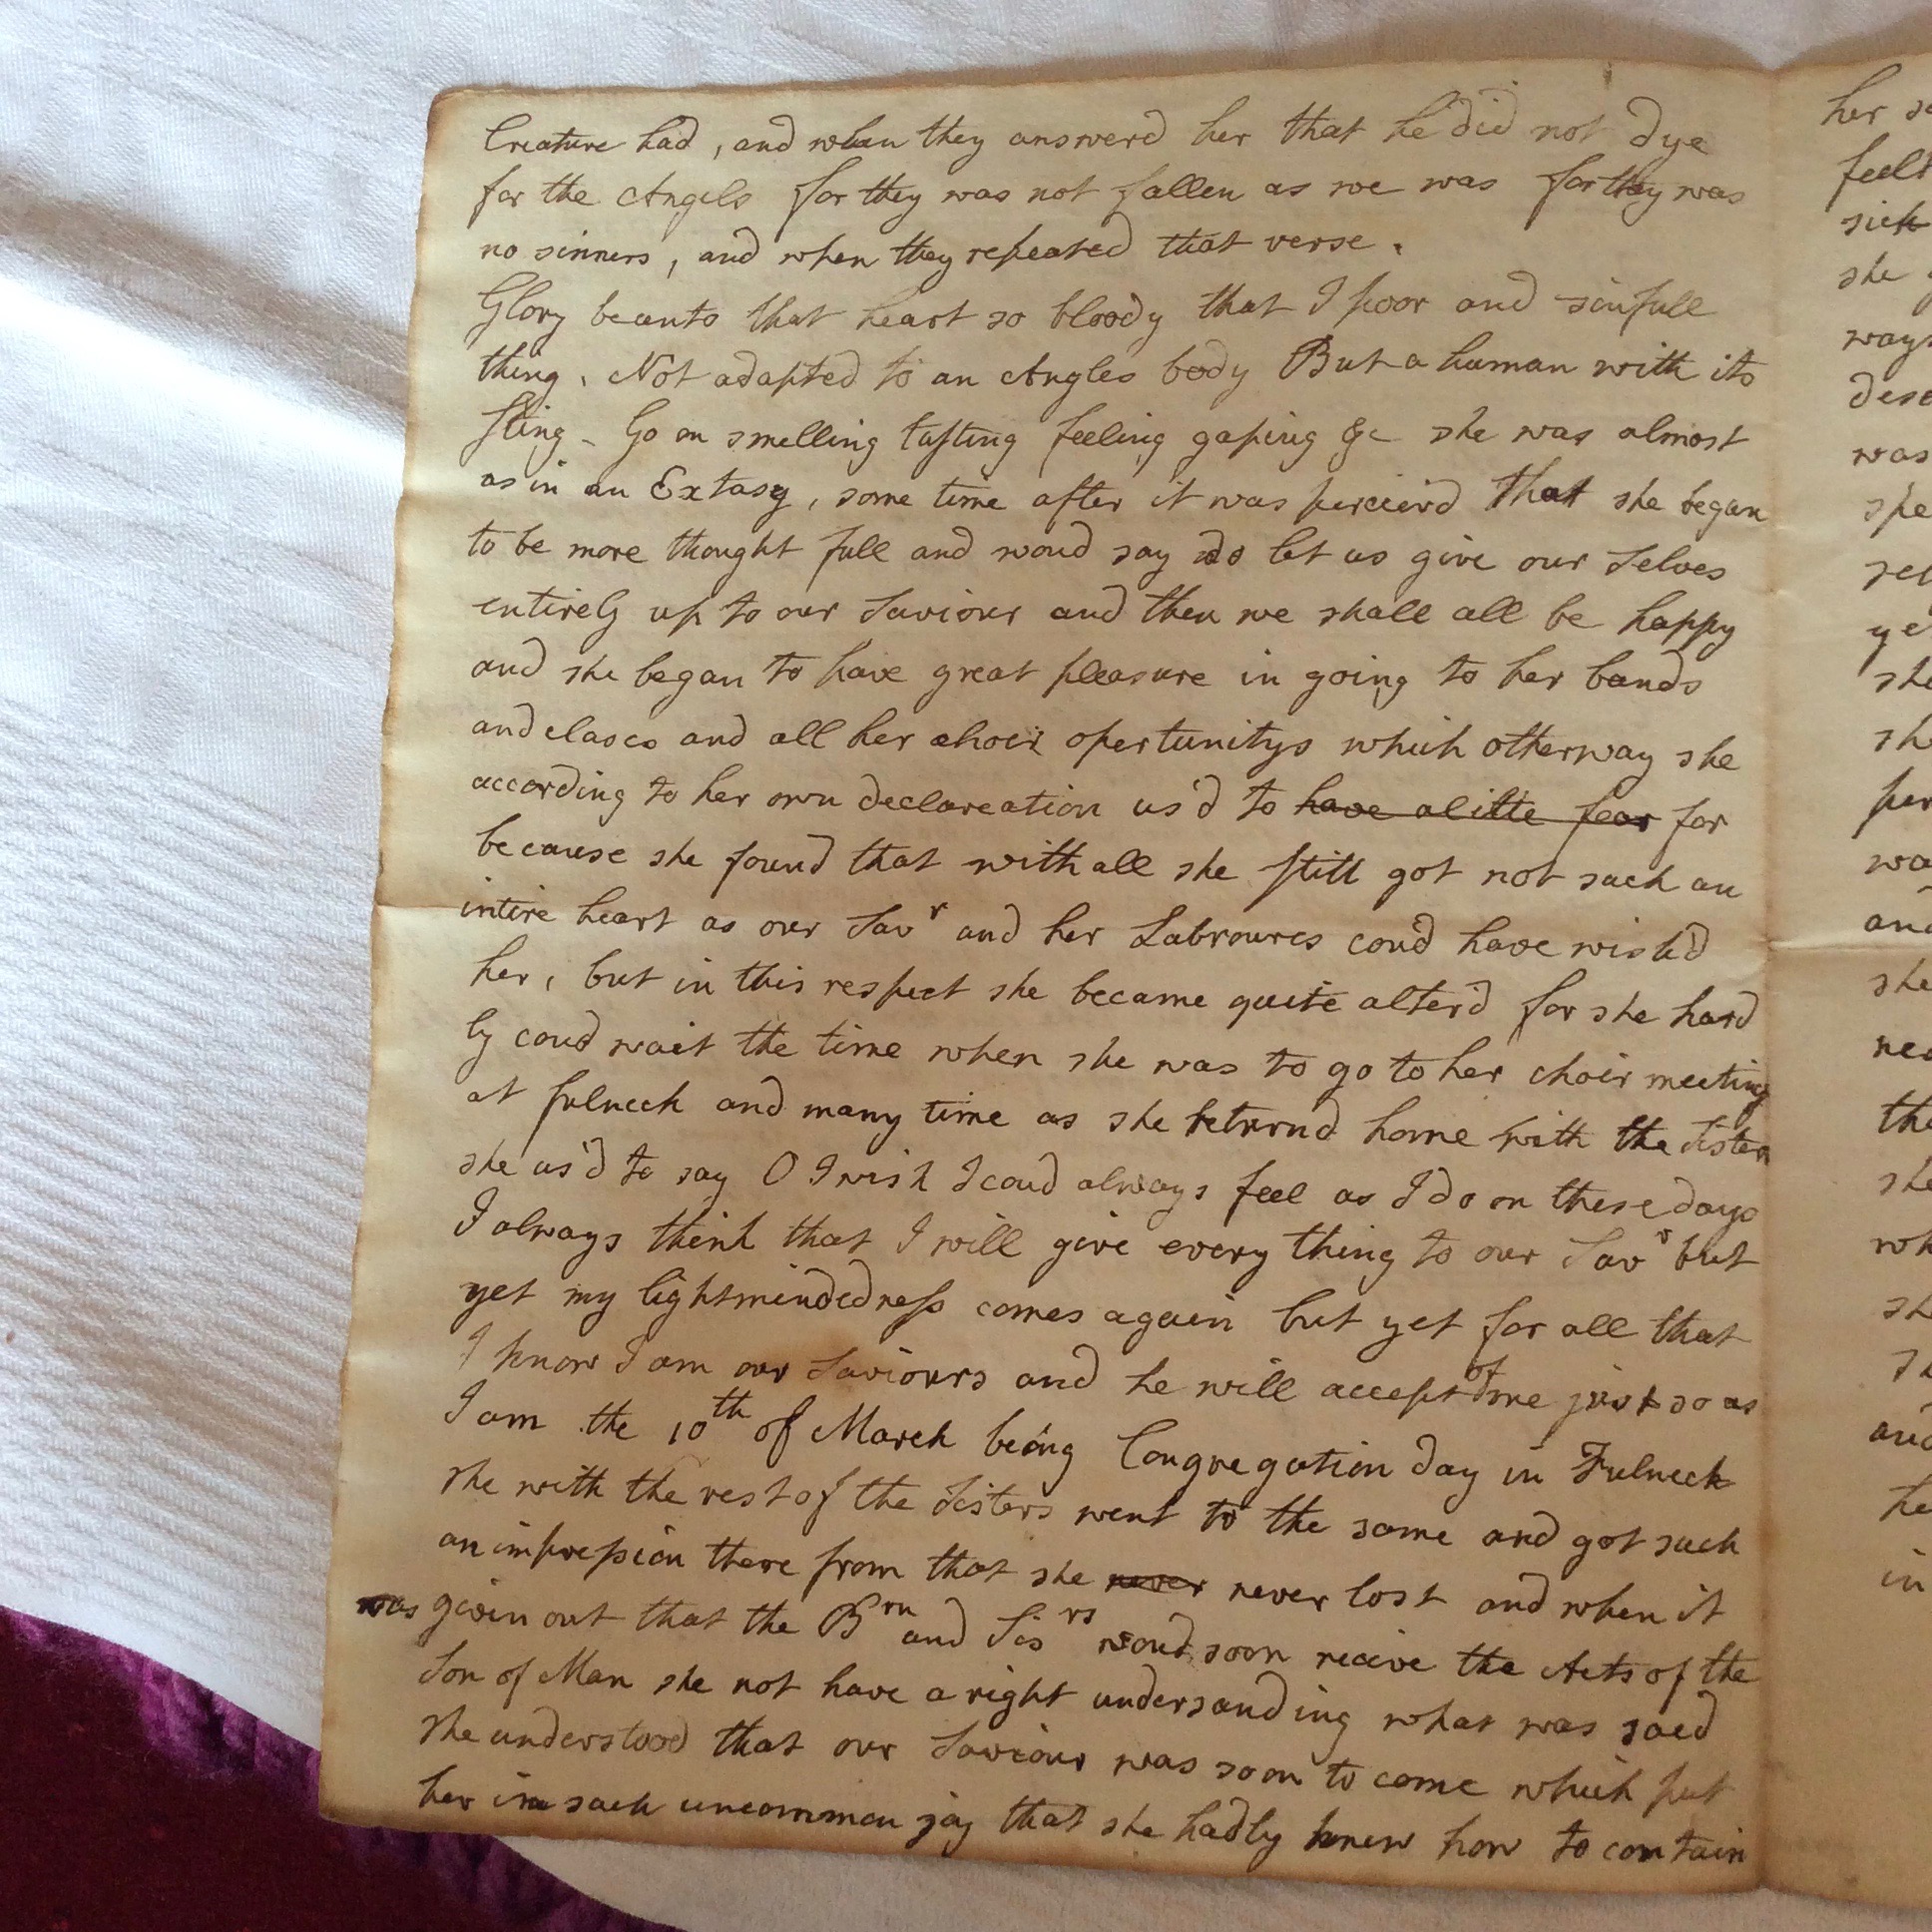 Creature had, and when they answerd her that he did not dye
for the Angels for they was not fallen as we was for they was
no sinners, and when they repeated that verse.
Glory be unto that heart so bloody that I poor and sinfull
thing. Not adapted to an Angles body But a human with its
sting - Go on smelling tasting feeling gaping &c she was almost
as in an Extasy, some time after it was perceivd that she began
to be more thought full and woud say do let us give our selves
entirely up to our Saviour and then we shall all be happy
and she began to have great pleasure in going to her bands
and clases and all her choir opertunitys which otherway she
according to her own declareation us'd to have a litte fear for
because she found that with all she still got not such an
intire heart as our Savr and her Labroures coud have wish'd
her, but in this respect she became quite alter'd for she hard
ly coud wait the time when she was to go to her choir meeting
at fulneck and many time as she returnd home with the Sisters
she us'd to say O I wish I coud always feel as I do on these days
I always think that I will give every thing to our Savr but
yet my lightmindedness comes again but yet for all that
I know I am our Saviours and he will accept of me just so as
I am the 10th of March being Congregation day in Fulneck
she with the rest of the Sisters went to the same and got such
an impression there from that she never never lost and when it
was given out that the Brn and Sisrs woud soon receive the Acts of the
Son of Man she not have a right undersanding what was saed
she understood that our Saviour was soon to come which put
her in such uncommon joy that she hadly knew how to contain
feelt
sick
she
was
she
and
she
the
she
she
and
he
in